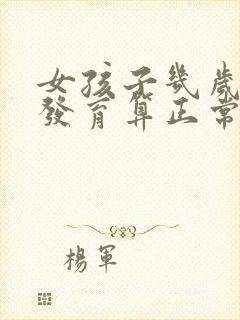 女孩子幾歲
發育算正常
楊軍